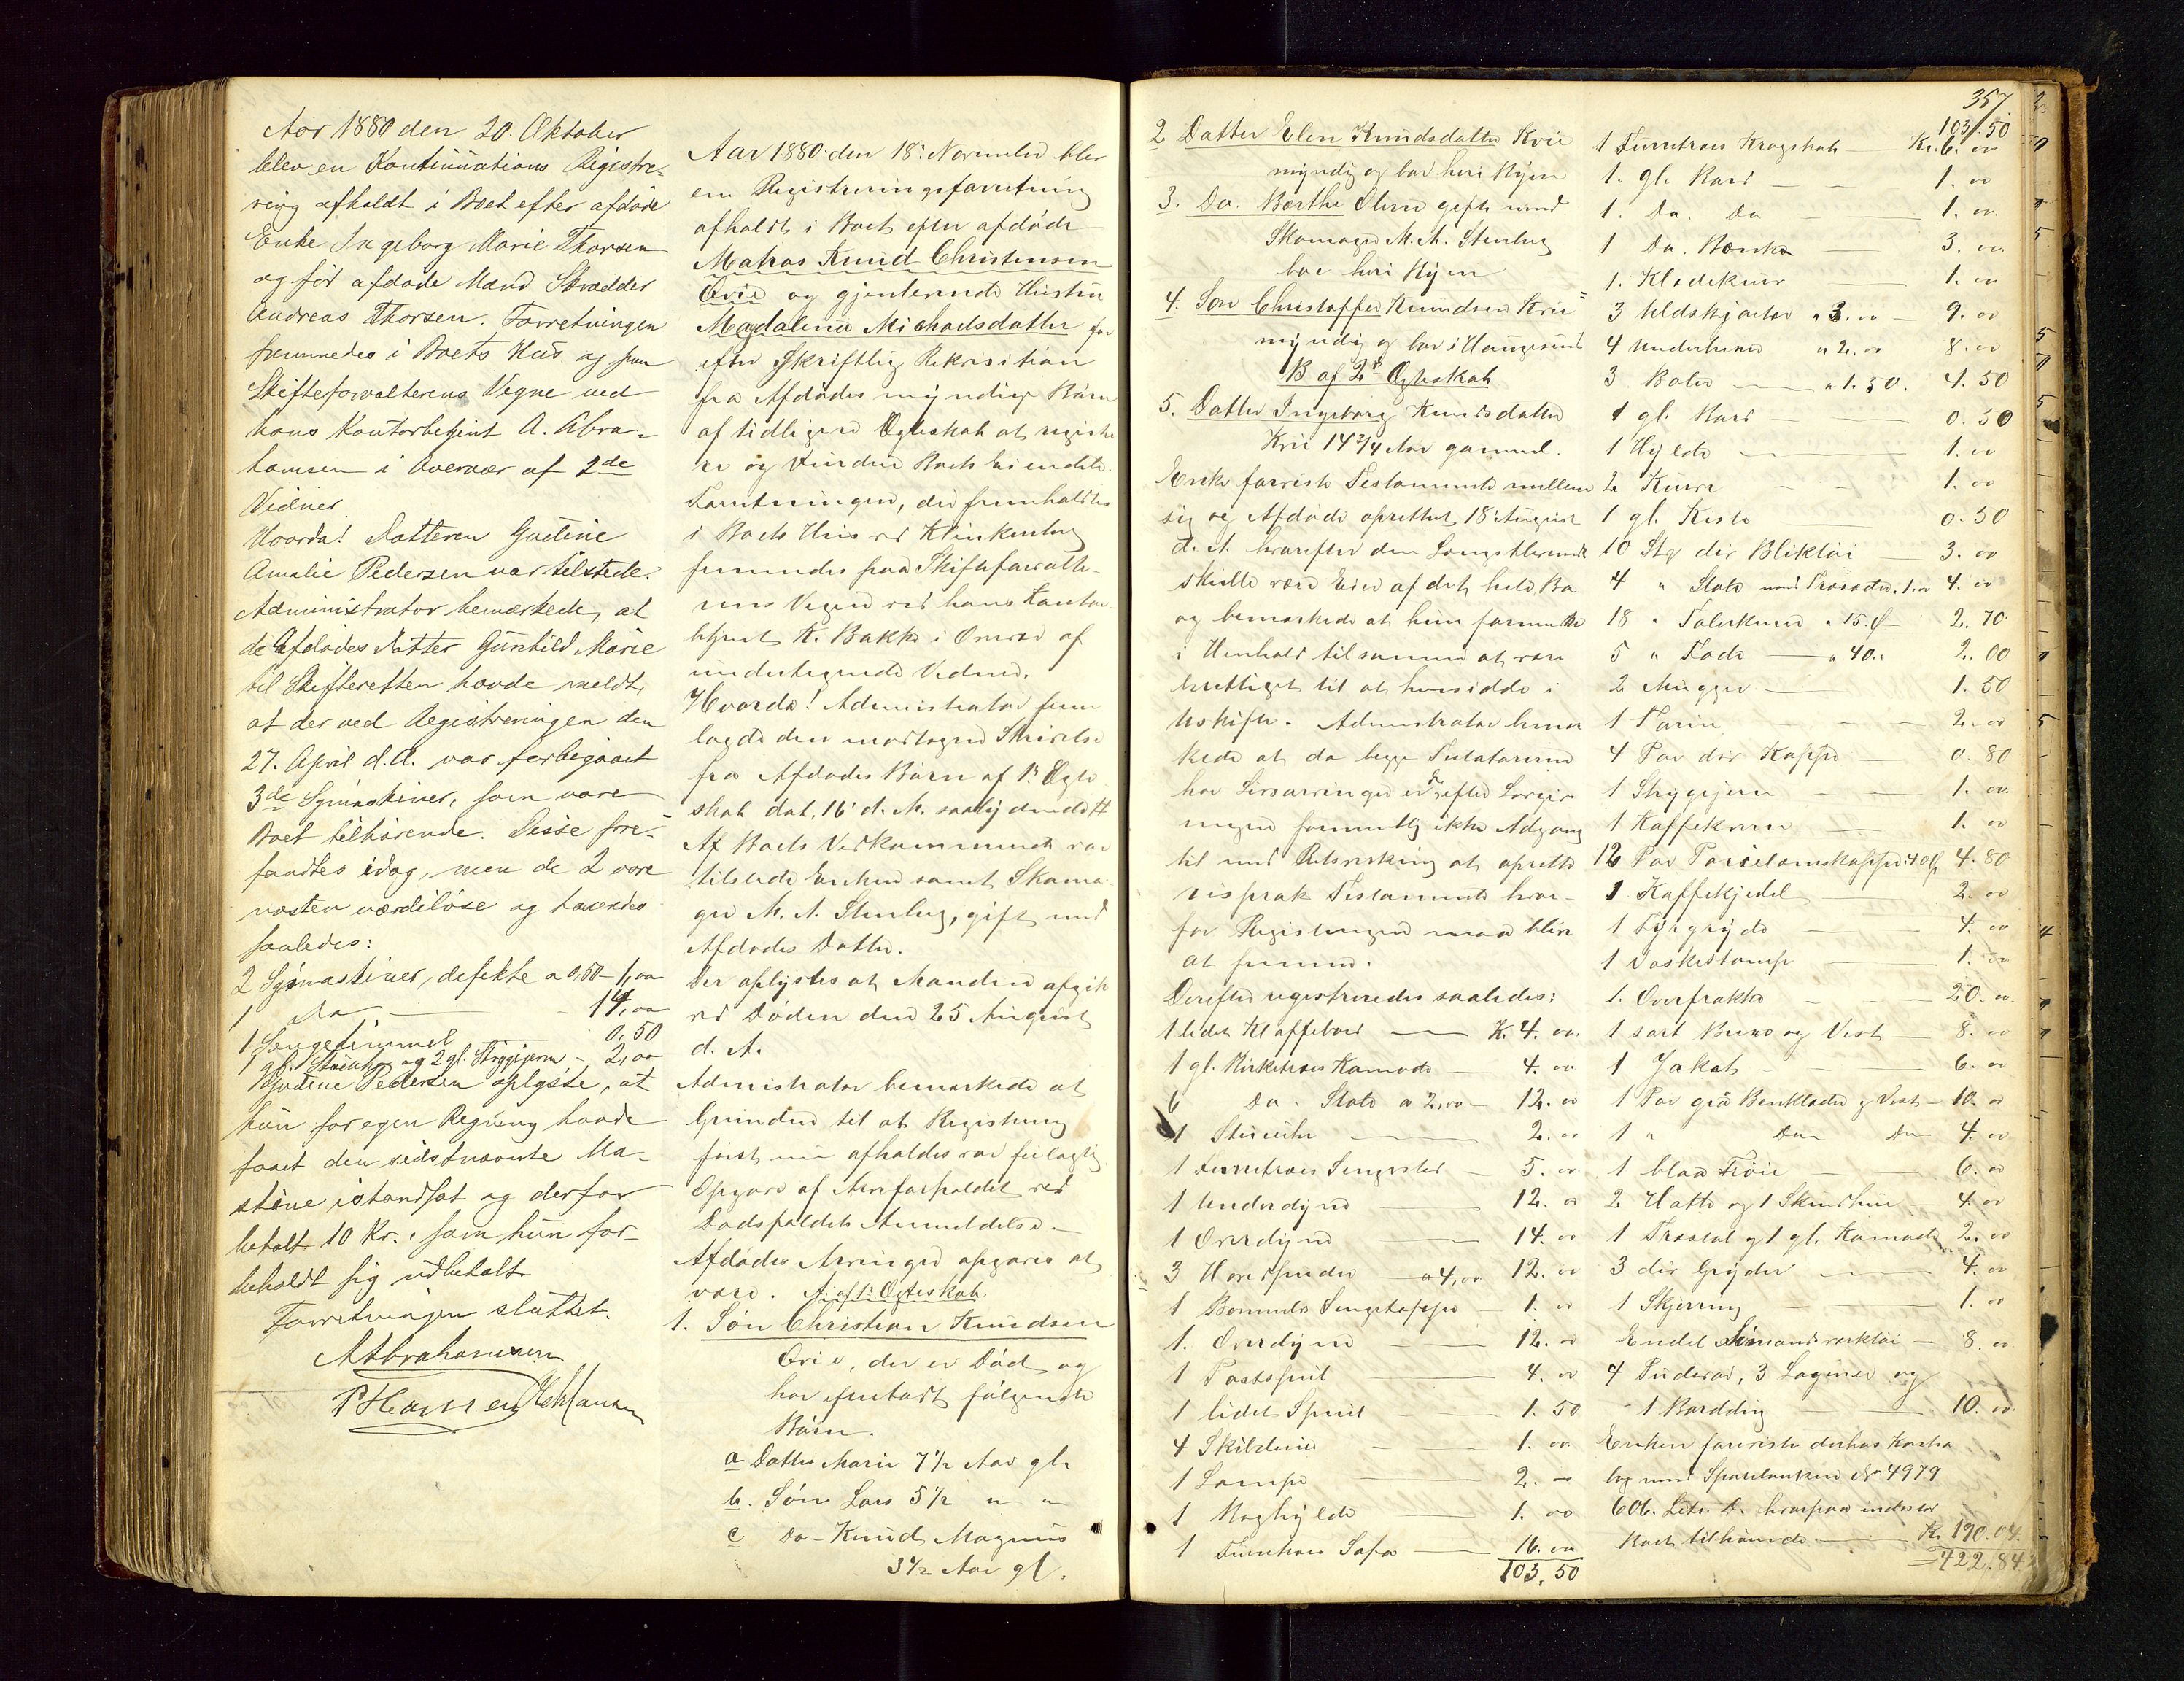 Aar 1880 den 20. Oktober
blev en Kontinuations Registre-
ring afholdt i Boet efter afdøde
Enke Ingeborg Marie Thorsen
og før afdøde Mand Skrædder
Andreas Thorsen. Forretningen
fremmedes i Boets Hus og paa
Skifteforvalterens Vegne ved
hans Kontorbetjent A. Abra-
hamsen i Overvær af 2de
Vidner.
Hvorda! Datteren Gustine
Amalie Pedersen var tilstede.
Administrator bemærkede, at
de Afdødes Datter Gunhild Marie
til Skifteretten havde meldt,
at der ved Registreringen den
27. April d.A. var forbigaaet
3de Symaskiner, som vare
Boet tilhørende. Disse fore-
fandtes idag, men de 2 vare
næsten værdiløse og taxeredes
saaledes:
2 Symaskiner, defekte a 0,50 - 1,00
1 do - 14,00
1 Sengehimmel - 0,50
1 gl. Stueuhr og 2 gl. Strygejern - 2,00
Gustine Pedersen oplyste, at
hun for egen Regning havde
faaet den sidstnævnte Ma-
skine istandsat og derfor
betalt 10 Kr., som hun for-
beholdt sig udbetalt.
Forretningen sluttet.
A Abrahamsen
P Hansen
Aar 1880 den 18' November blev
en Registreringsforretning
afholdt i Boet efter afdøde
Matros Knud Christensen
Qvie og gjenlevende Hustru
Magdalena Michaelsdatter for
efter skriftlig Rekvisition
fra Afdødes myndige Børn
af tidligere Ægteskab at registre
re og vurdere Boets Eiendele.
Forretningen, der fremholdtes
i Boets Huus ved Klinkenberg
fremmedes paa Skifteforvalte-
rens Vegne ved hans Kontor
betjent K. Bakke i Overvær af
undertegnede Vidner.
Hvorda! Administrator frem
lagde den modtagne Skrivelse
fra Afdødes Børn af 1' Ægte
skab dat. 16' d. M. saalydende #
Af Boets Vedkommende var
tilstede Enken samt Skoma-
ger M. A. Stenberg, gift med
Afdødes Datter.
Der oplystes at Manden afgik
ved Døden den 25 August
d. A.
Administrator bemærkede at
Grunden til at Registrering
først nu afholdes var feilagtig
Opgave af Arveforholdet ved
Dødsfaldets Anmeldelse.
Afdødes Arvinger opgaves at
være. A. af 1' Ægteskab.
1. Søn Christian Knudsen
Qvie, der er Død og
har efterladt følgende
Børn.
a Datter Marie 7 1/2 Aar gl.
b. Søn Lars 5 1/2 " "
c Do - Knud Magnus
3 1/2 Aar gl.
357
2 Datter Elen Knudsdatter Kvie
myndig og bor her i Byen
3. Do. Berthe Oline gift med
Skomager M. A. Stenberg
bor her i Byen
4. Søn Christoffer Knudsen Kvie
myndig og bor i Haugesund
B af 2' Ægteskab
5. Datter Ingeborg Knudsdatter
Kvie 14 3/4 Aar gammel.
Enken foreviste Testamente mellem
sig og Afdøde oprettet 18' August
d. A. hvorefter den Længstlevende
skulle være Eier af det hele Bo
og bemærkede at hun formente
i Henhold til samme at være
berettiget til at hensidde i
Uskifte. Administrator bemær
kede at da begge Testatorerne
har Livsarvinger er der efter Lovgiv
ningen formentlig ikke Adgang
til med Retsvirkning at oprette
Testamente hvor-
for Registreringen maa blive
at fremme.
Derefter registreredes saaledes:
1 lidet Klaffebord — K. 4. 00.
1 gl. Birketræes Komode — 4. 00
6 Do. Stole a 2,00 — 12. 00
1 Stueuhr — 2. 00
1 Furutræes Sengested — 5. 00
1 Underdyne — 12. 00
1 Overdyne — 14. 00
3 Hovedpuder — a 4,00 12. 00
1 Bomulds Sengeteppe — 1. 00
1. Overdyne — 12. 00
1 Postspeil — 4. 00
1 lidet Speil — 1. 50
4 Skilderier — 1. 00
1 Lampe — 2. -
1 Boghylde — 1. 00
1 Furutræes Sofa — 16. 00
103,50
103.50
1 Furutræes Kragskab — Kr. 6. 00
1. gl. Bord — 1. 00
1. Do. Do — 1. 00.
1 Do. Bænk — 3. 00
1. Klædekurv — 1. 00
3 Uldskjorter a 3.00 — 9. 00
4 Underbuxer a 2.00 8. 00
3 Boler — a 1.50. 4. 50
1 gl. Bord — 0. 50
1 Hylde — 1. 00
2 Kurve — 1. 00
1 gl. Kiste — 0. 50
10 Stkr. div Bliktøi — 3. 00
4 " Stole med Træsæder a 1.00 4. 00
18 " Talerkener a 15.Ø — 2. 70
5 " Fade — a 40. " 2. 00
2 Mugger — 1. 50
1 Tarin — 2. 00
4 Par div Koppe — 0. 80
1 Strygejern — 1. 00
1 Kaffekværn — 1. 00
12 Par Porcelænskopper a 40 Ø 4. 80
1 Kaffekjedel — 2. 00
1 Fyrgryde — 4. 00
1 Vaskestamp — 1. 00
1. Overfrakke — 20. 00
1 sort Buxe og Vest — 8. 00
1 Jakat — 6. 00
1 Par graa Benklæder og Vest — 10. 00
1 " Do Do — 4. 00
1 blaa Trøie — 6. 00
2 Hatte og 1 Skindhue — 4. 00
1 Træstol og 1 gl. Komode 2. 00
3 div Gryder — 4. 00
1 Skjerring — 1. 00
Endel Sømandsværktøi — 8. 00
4 Pudervar, 3 Lagener og
1 Borddug — 10. 00
Enken foreviste derhos Kontra
bog med Sparebanken No 4979
606. Litr. D. hvorpaa indestod
Boet tilhørende — Kr 190.04.
422.84